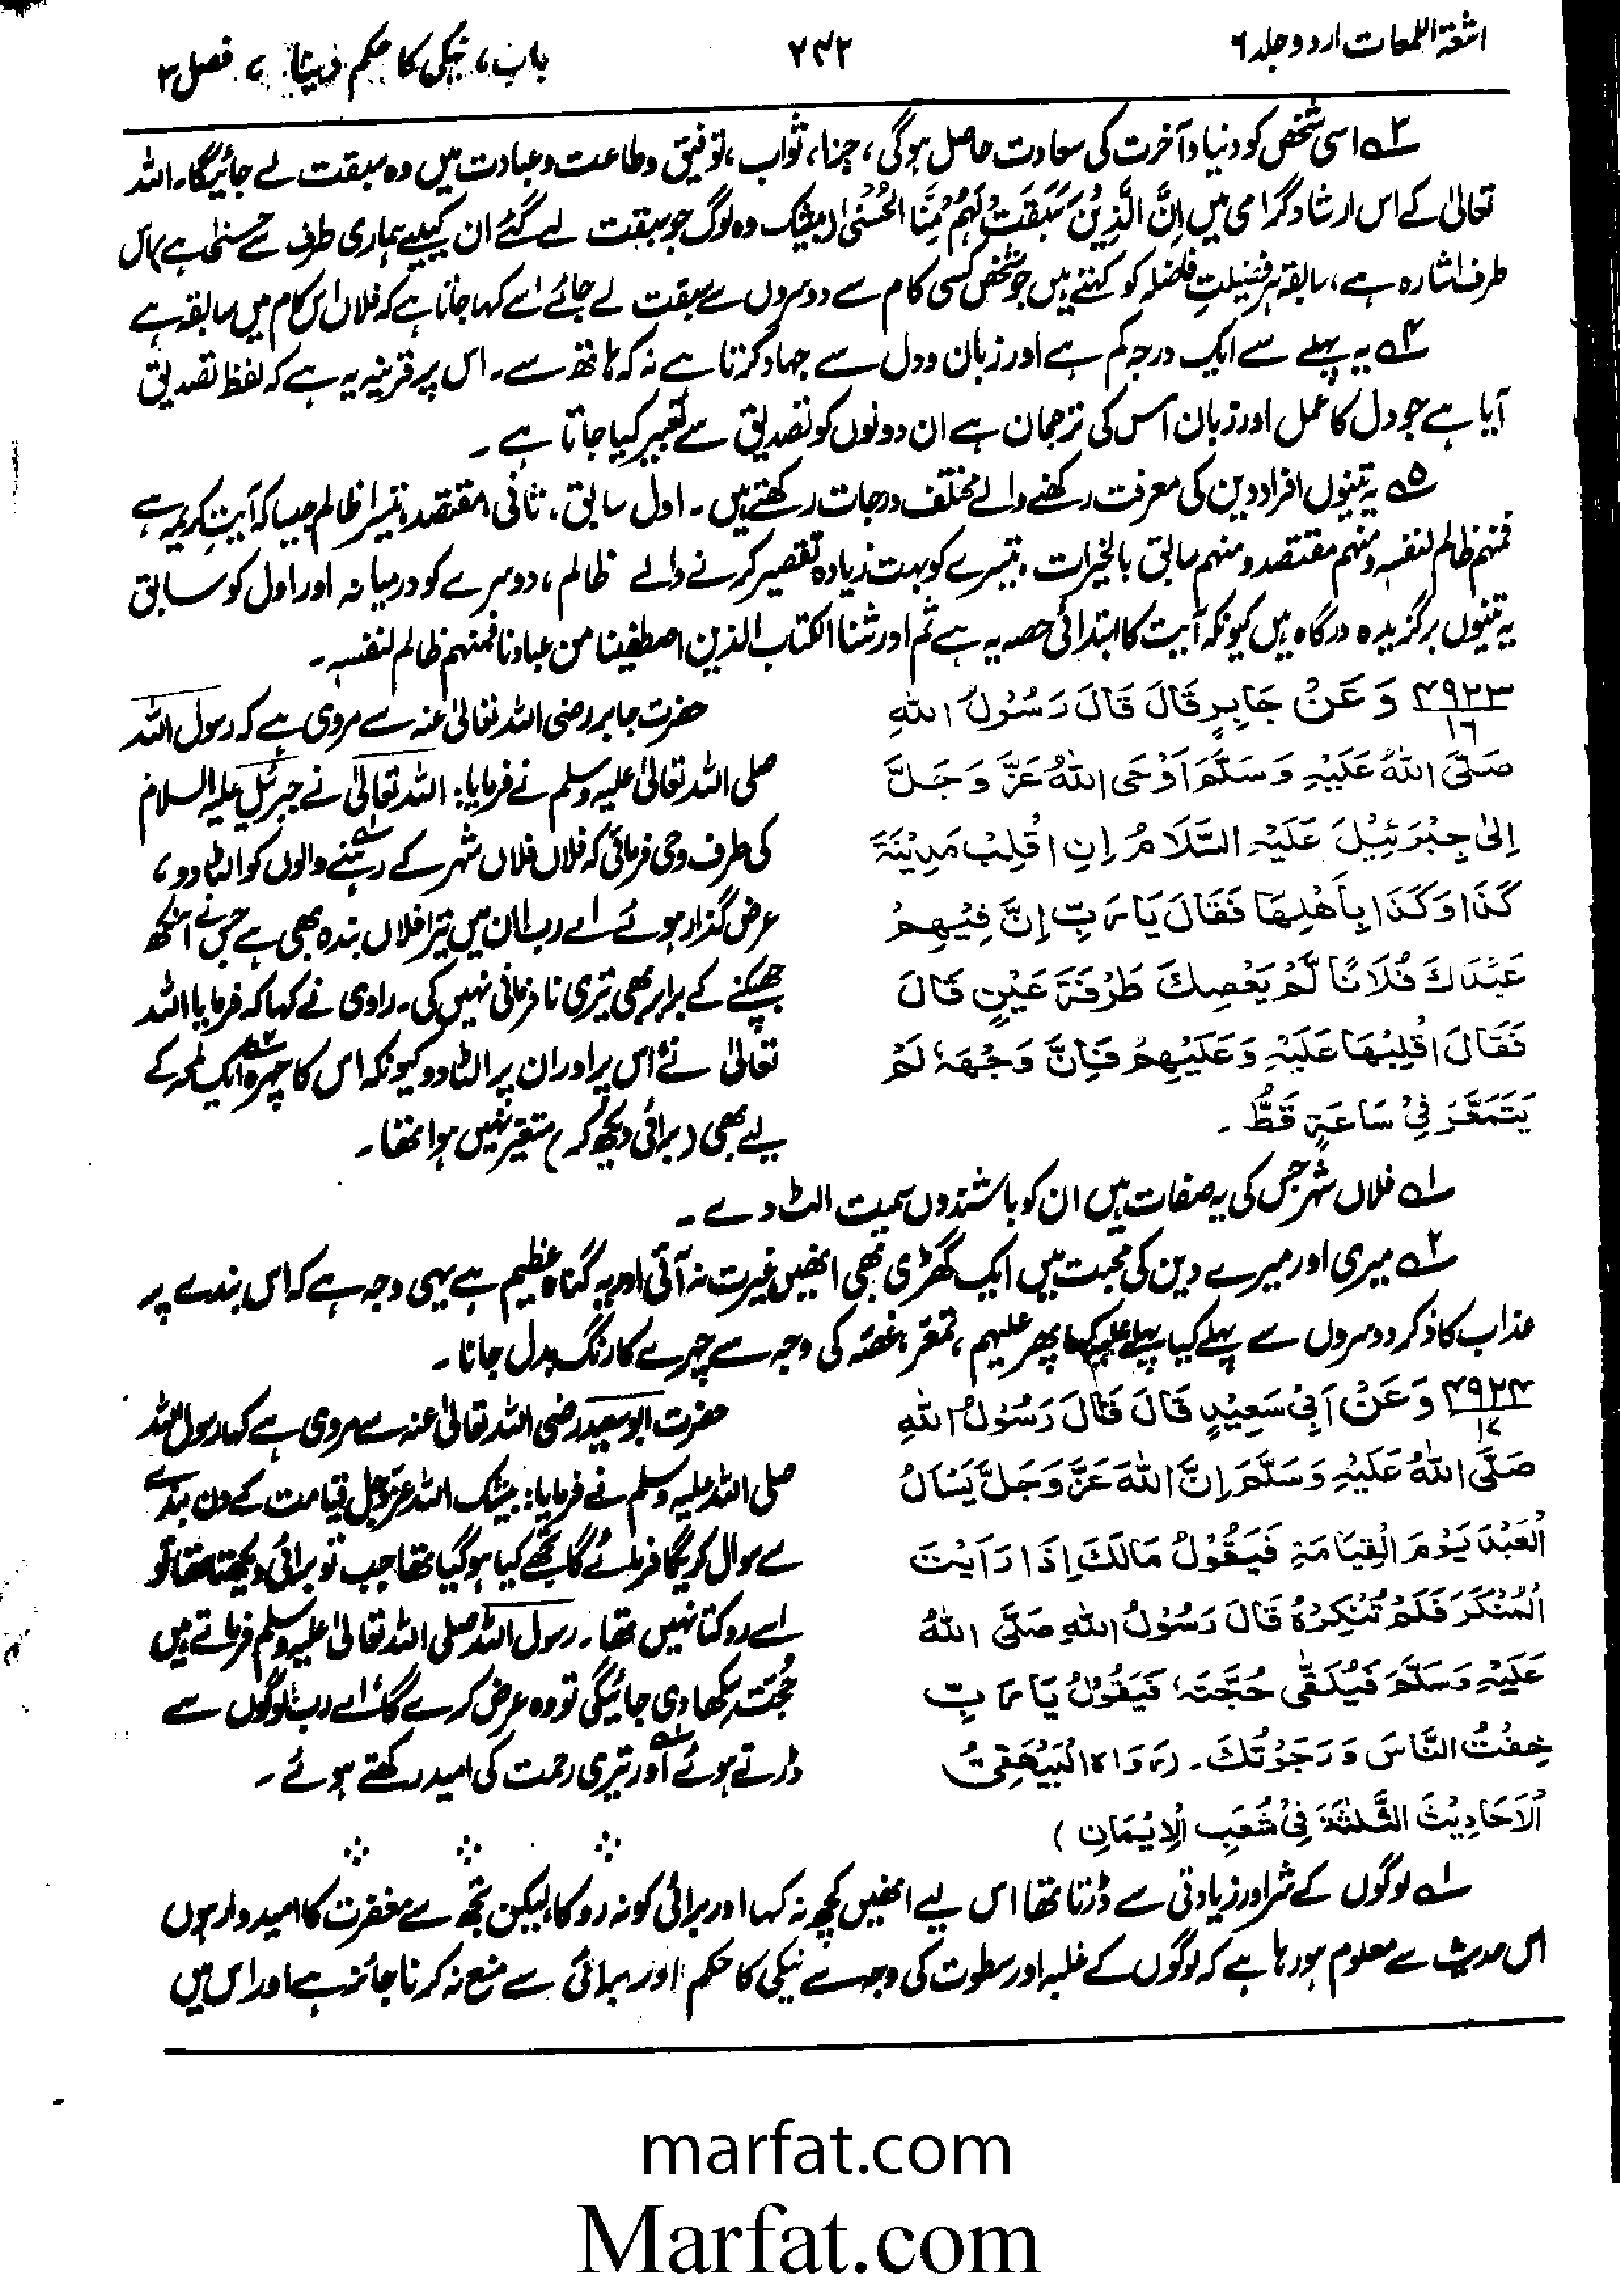 اشعۃ اللمعات اردو جلد ۶
۲۴۲
باب، نیکی کا حکم دینا، فصل ۳
۳ اسی شخص کو دنیا و آخرت کی سعادت حاصل ہوگی، جزا، ثواب، توفیق و طاعت و عبادت میں وہ سبقت لے جائیگا۔ اللہ
تعالیٰ کے اس ارشاد گرامی میں اِنَّ الَّذِیْنَ سَبَقَتْ لَہُمْ مِّنَّا الْحُسْنٰی (بیشک وہ لوگ جو سبقت لے گئے ان کیلیے ہماری طرف سے حسنیٰ ہے) اس
طرف اشارہ ہے، سابقہ ہر فضیلتِ فاضلہ کو کہتے ہیں جو شخص کسی کام سے دوسروں سے سبقت لے جائے اسے کہا جاتا ہے کہ فلاں اس کام میں سابقہ ہے
۴ یہ پہلے سے ایک درجہ کم ہے اور زبان و دل سے جہاد کرتا ہے نہ کہ ہاتھ سے۔ اس پر قرینہ یہ ہے کہ لفظ تصدیق
آیا ہے جو دل کا عمل اور زبان اس کی ترجمان ہے ان دونوں کو تصدیق سے تعبیر کیا جاتا ہے۔
۵ یہ تینوں افراد دین کی معرفت رکھنے والے مختلف درجات رکھتے ہیں۔ اول سابق، ثانی مقتصد، تیسرا ظالم جیسا کہ آیتِ کریمہ ہے
فمنہم ظالم لنفسہ ومنہم مقتصد ومنہم سابق بالخیرات، تیسرے کو بہت زیادہ تقصیر کرنے والے ظالم، دوسرے کو درمیانہ اور اول کو سابق
یہ تینوں برگزیدہ درگاہ ہیں کیونکہ آیت کا ابتدائی حصہ یہ ہے ثم اورثنا الکتاب الذین اصطفینا من عبادنا فمنہم ظالم لنفسہ۔
۴۹۲۳/۱۶ وَعَنْ جَابِرٍ قَالَ قَالَ رَسُوْلُ اللهِ
صَلَّى اللهُ عَلَيْهِ وَسَلَّمَ اَوْحَى اللهُ عَزَّ وَجَلَّ
اِلٰى جِبْرَئِيْلَ عَلَيْهِ السَّلَامُ اِنِ اقْلِبْ مَدِيْنَةَ
كَذَا وَكَذَا بِاَهْلِهَا فَقَالَ يَا رَبِّ اِنَّ فِيْهِمْ
عَبْدَكَ فُلَانًا لَّمْ يَعْصِكَ طَرْفَةَ عَيْنٍ قَالَ
فَقَالَ اقْلِبْهَا عَلَيْهِ وَعَلَيْهِمْ فَاِنَّ وَجْهَهٗ لَمْ
يَتَمَعَّرْ فِيْ سَاعَةٍ قَطُّ۔
حضرت جابر رضی اللہ تعالیٰ عنہ سے مروی ہے کہ رسول اللہ
صلی اللہ تعالیٰ علیہ وسلم نے فرمایا: اللہ تعالیٰ نے جبرئیل علیہ السلام
کی طرف وحی فرمائی کہ فلاں فلاں شہر کے رہنے والوں کو الٹا دو،۱
عرض گذار ہوئے اے رب! ان میں تیرا فلاں بندہ بھی ہے جس نے آنکھ
جھپکنے کے برابر بھی تیری نافرمانی نہیں کی۔ راوی نے کہا کہ فرمایا اللہ
تعالیٰ نے اس پر اور ان پر الٹا دو کیونکہ اس کا چہرہ۲ ایک لمحہ کے
لیے بھی (برائی دیکھ کر) متغیر نہیں ہوا تھا۔
۱ فلاں شہر جس کی یہ صفات ہیں ان کو باشندوں سمیت الٹ دے۔
۲ میری اور میرے دین کی محبت میں ایک گھڑی بھی انھیں غیرت نہ آئی اور یہ گناہ عظیم ہے یہی وجہ ہے کہ اس بندے پر
عذاب کا ذکر دوسروں سے پہلے کیا پہلے علیہ کہا پھر علیہم، تمعّر، غصّہ کی وجہ سے چہرے کا رنگ بدل جانا۔
۴۹۲۴/۱۷ وَعَنْ اَبِيْ سَعِيْدٍ قَالَ قَالَ رَسُوْلُ اللهِ
صَلَّى اللهُ عَلَيْهِ وَسَلَّمَ اِنَّ اللهَ عَزَّ وَجَلَّ يَسْاَلُ
الْعَبْدَ يَوْمَ الْقِيَامَةِ فَيَقُوْلُ مَالَكَ اِذَا رَاَيْتَ
الْمُنْكَرَ فَلَمْ تُنْكِرْهُ قَالَ رَسُوْلُ اللهِ صَلَّى اللهُ
عَلَيْهِ وَسَلَّمَ فَيُلَقّٰى حُجَّتَهٗ فَيَقُوْلُ يَا رَبِّ
خِفْتُ النَّاسَ وَرَجَوْتُكَ۔ (رَوَاهُ الْبَيْهَقِيُّ
الْاَحَادِيْثَ الثَّلٰثَةَ فِيْ شُعَبِ الْاِيْمَانِ)
حضرت ابو سعید رضی اللہ تعالیٰ عنہ سے مروی ہے کہا رسول اللہ
صلی اللہ علیہ وسلم نے فرمایا: بیشک اللہ عزوجل قیامت کے دن بندے
سے سوال کریگا فرمائے گا تجھے کیا ہو گیا تھا جب تو برائی دیکھتا تھا تو
اسے روکتا نہیں تھا۔ رسول اللہ صلی اللہ تعالیٰ علیہ وسلم فرماتے ہیں
حُجّت سکھا دی جائیگی تو وہ عرض کرے گا اے رب! لوگوں سے
ڈرتے ہوئے۱ اور تیری رحمت کی امید رکھتے ہوئے۔
۱ لوگوں کے شر اور زیادتی سے ڈرتا تھا اس لیے انھیں کچھ نہ کہا اور برائی کو نہ روکا، لیکن تجھ سے مغفرت کا امیدوار ہوں
اس حدیث سے معلوم ہو رہا ہے کہ لوگوں کے غلبہ اور سطوت کی وجہ سے نیکی کا حکم اور برائی سے منع نہ کرنا جائز ہے اور اس میں
marfat.com
Marfat.com